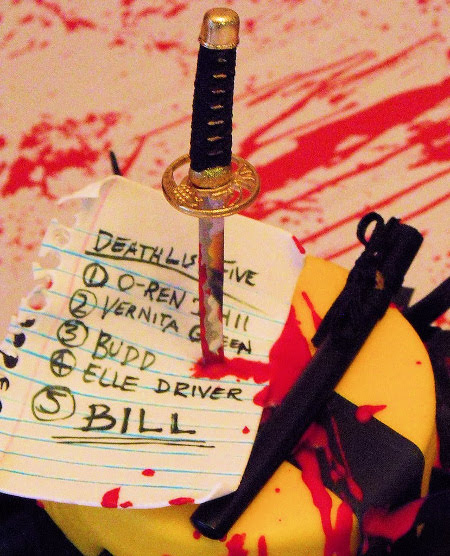 DEATH LIST FIVE
1 O-REN ISHII
2 VERNITA GREEN
3 BUDD
4 ELLE DRIVER
5 BILL